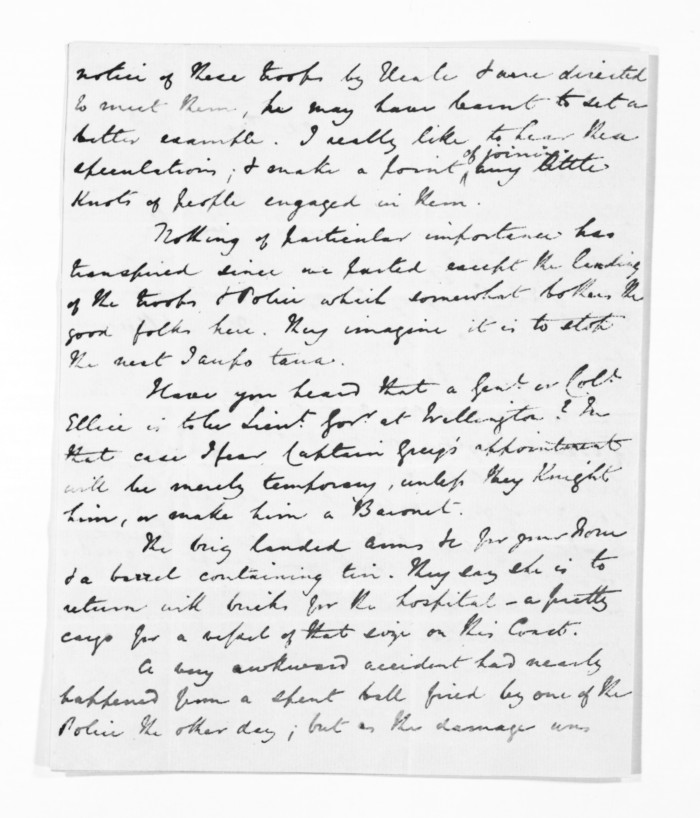 notice of these troops by & were directed
to meet them, he may have learnt to set a
better example. I really like to hear these
speculations; & make a point of joining any little
Knots of people engaged in them.
Nothing of particular importance has
transpired since we parted except the landing
of the troops & Police which somewhat bothers the
good folks here. They imagine it is to stop
the next Taupo taua.
Have you heard that a Genl. or Coll.
Ellice is to be Lieut. Govr. at Wellington? In
that case I fear Captain Grey's appointment
will be merely temporary, unless they Knight
him, or make him a Baronet.
The brig landed arms &c for your
& a barrel containing tin. They say she is to
return with bricks for the hospital - a pretty
cargo for a vessel of that size on this Coast.
A very awkward accident had nearly
happened from a spent ball fired by one of the
Police the other day; but as the damage was